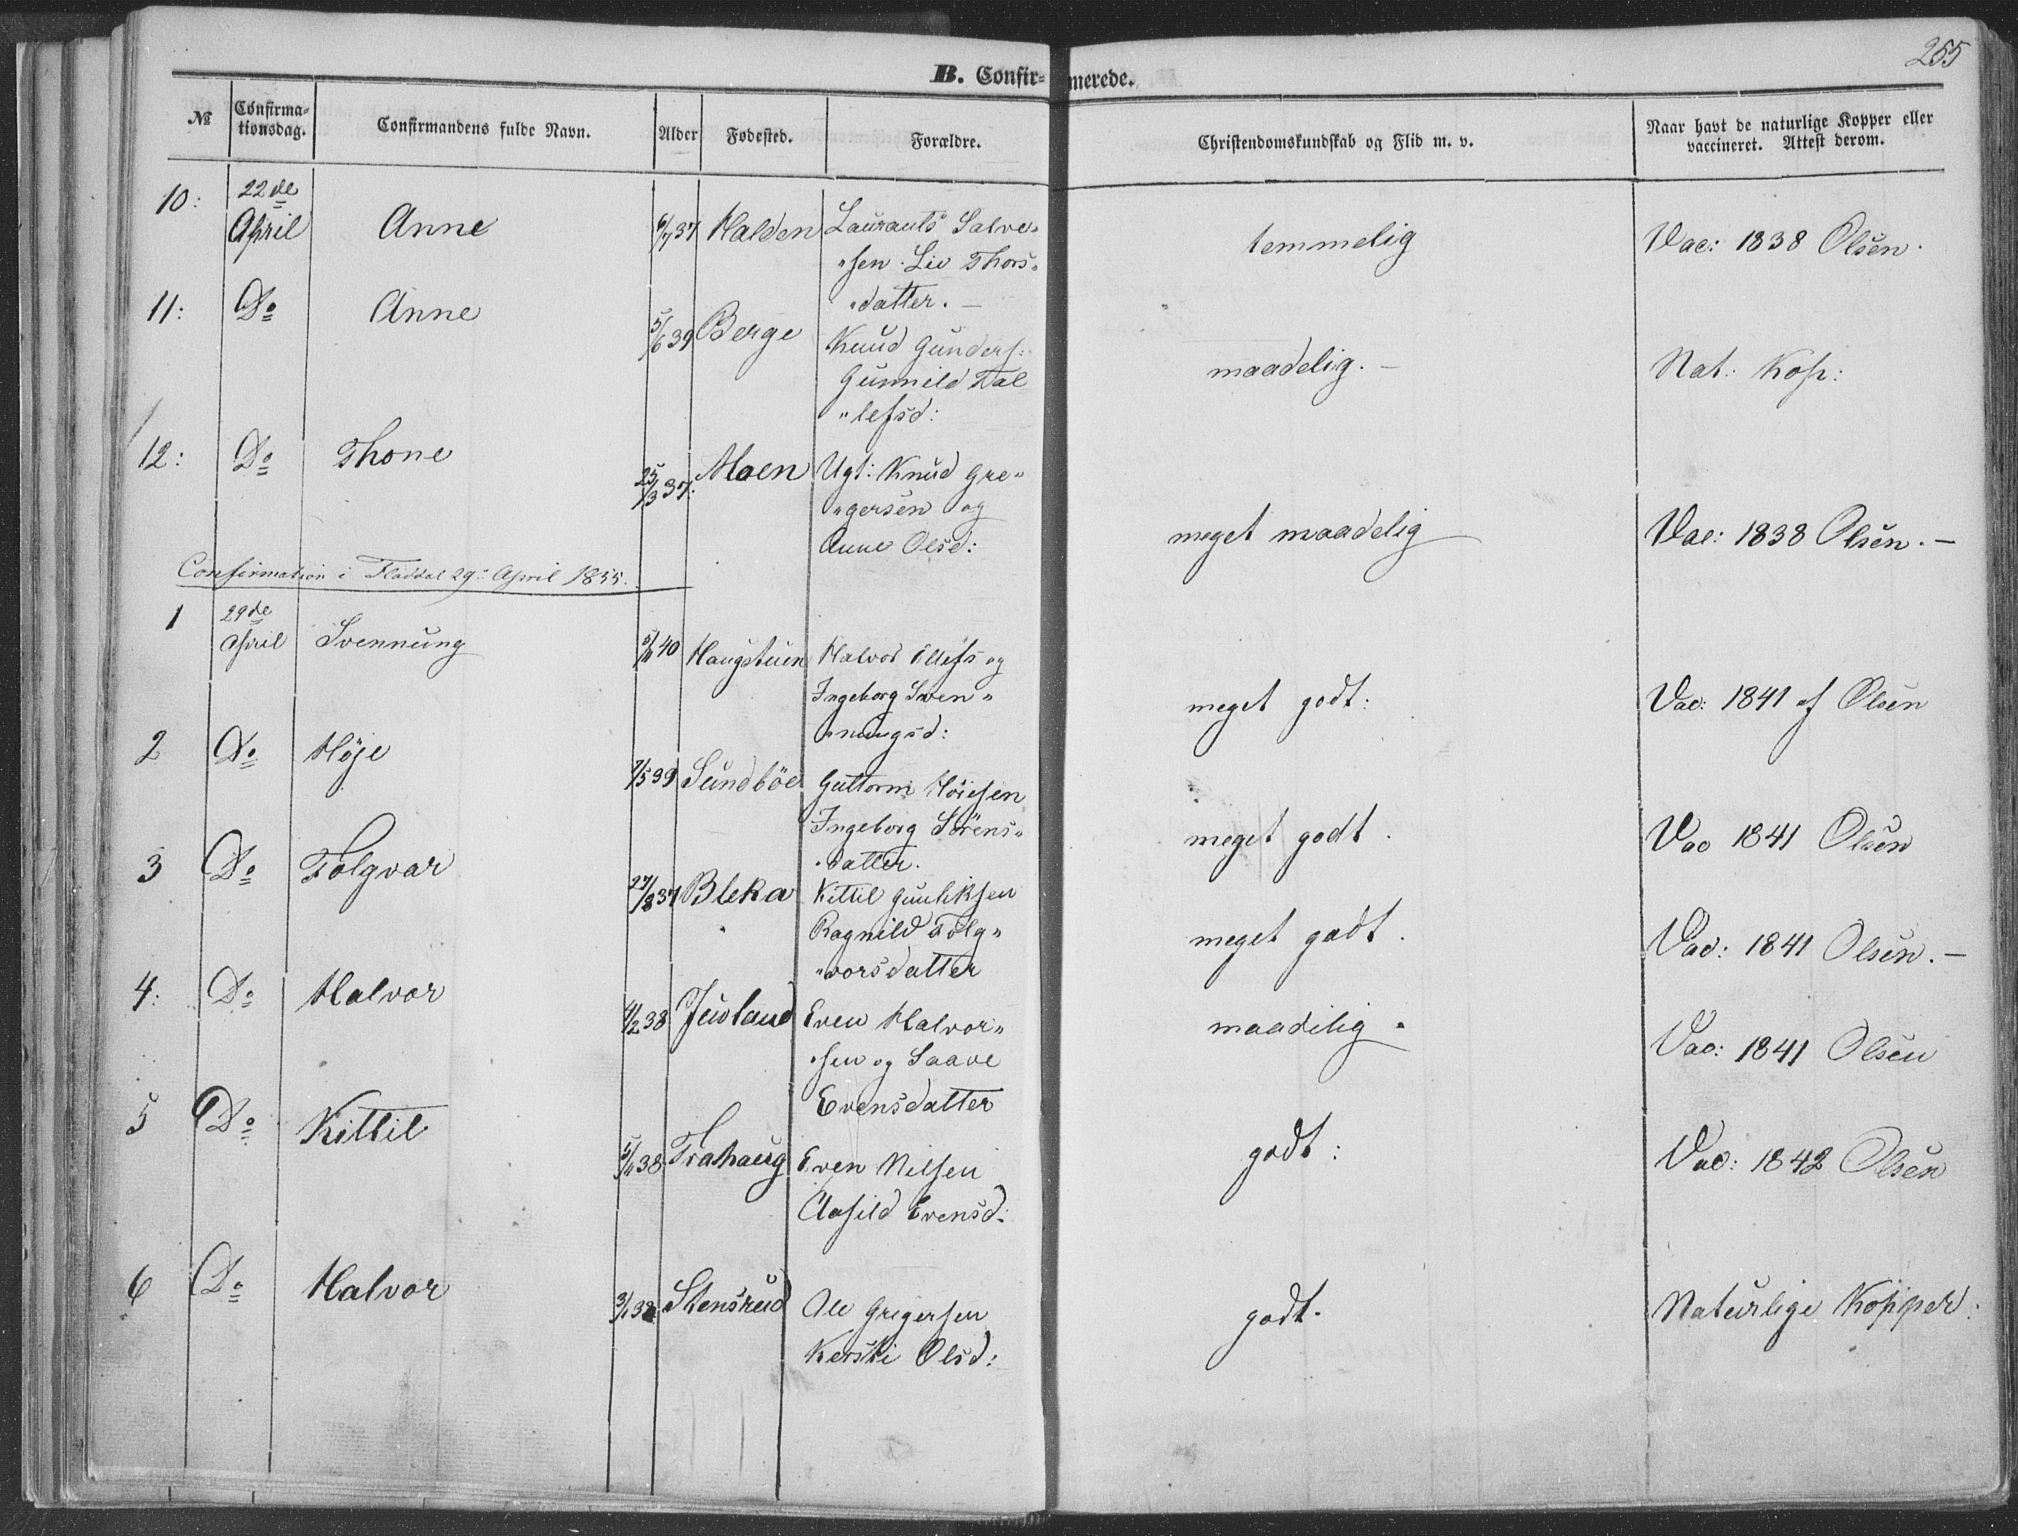 255
B. Confirmerede.
№ Confirmationsdag. Confirmandens fulde Navn. Alder Fødested. Forældre. Christendomskundskab og Flid m. v. Naar havt de naturlige Kopper eller vaccineret. Attest derom.
10: 22de April Anne 6/7 37 Halden Laurants Salve-
"sen. Liv Thors-
"datter. —
temmelig Vac: 1838 Olsen.
11: Do Anne 5/6 39 Berge Knud Gunders:
Gunnild Tal
"lefsd:
maadelig. — Nat: Kop:
12: Do Thone 25/3 37: Moen Ugt: Knud Gre-
"gersen og
Anne Olsd:
meget maadelig Vac: 1838 Olsen. —
Confirmation i Fladdal 29: April 1855.
1 29de April Svennung 40 Haugstuen Halvor Ellefs og
Ingeborg Sven-
"nungsd:
meget godt: Vac: 1841 af Olsen
2 Do Höje 7/5 39 Sundböe Guttorm Höiesen
Ingeborg Sörens-
datter.
meget godt. Vac 1841 Olsen
3 Do Folgvar 27/8 37 Bleka Kittil Gunliksen
Ragnild Folg-
"vorsdatter
meget godt. Vac: 1841 Olsen. —
4: Do Halvor 4/2 38 Juvland Even Halvor-
"sen og Saave
Evensdatter
maadelig. Vac: 1841 Olsen
5 Do Kittil 38 Trahaug Even Nilsen
Aasild Evensd:
godt: Vac: 1842 Olsen
6 Do Halvor 3/1 38 Stensrud Ole Gregersen
Kerski Olsd:
godt. Naturlige Kopper.